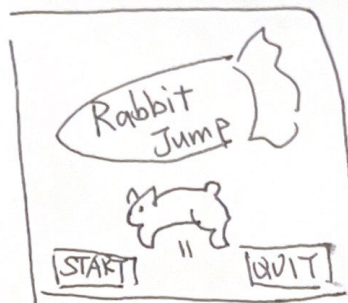 Rabbit
Jump
START
QUIT